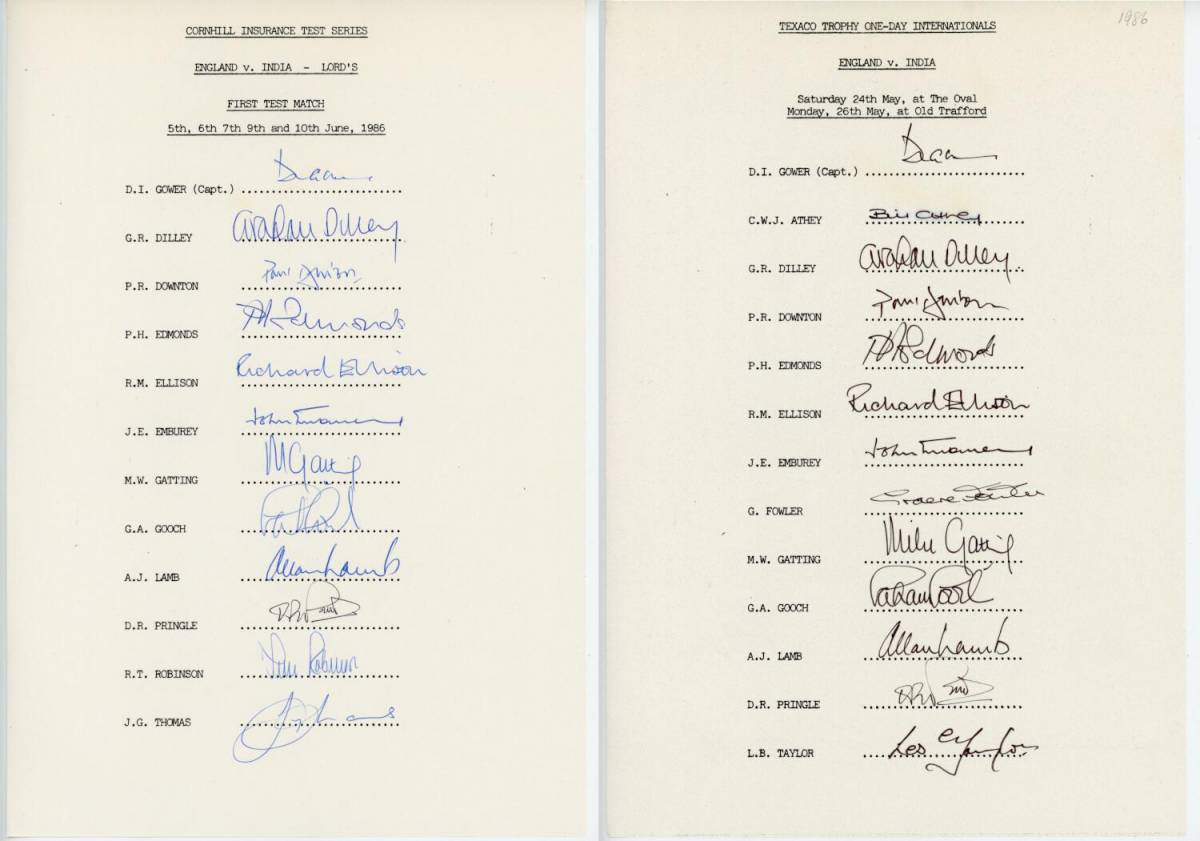 CORNHILL INSURANCE TEST SERIES
ENGLAND v. INDIA - LORD'S
FIRST TEST MATCH
5th, 6th 7th 9th and 10th June, 1986
D.I. GOWER (Capt.) ..............................
G.R. DILLEY Graham Dilley
P.R. DOWNTON
P.H. EDMONDS PH Edmonds
R.M. ELLISON Richard Ellison
J.E. EMBUREY
M.W. GATTING M Gatting
G.A. GOOCH
A.J. LAMB Allan Lamb
D.R. PRINGLE
R.T. ROBINSON
J.G. THOMAS
1986
TEXACO TROPHY ONE-DAY INTERNATIONALS
ENGLAND v. INDIA
Saturday 24th May, at The Oval
Monday, 26th May, at Old Trafford
D.I. GOWER (Capt.) ..............................
C.W.J. ATHEY
G.R. DILLEY Graham Dilley
P.R. DOWNTON
P.H. EDMONDS PH Edmonds
R.M. ELLISON Richard Ellison
J.E. EMBUREY
G. FOWLER Graeme Fowler
M.W. GATTING Mike Gatting
G.A. GOOCH
A.J. LAMB Allan Lamb
D.R. PRINGLE
L.B. TAYLOR Les Taylor